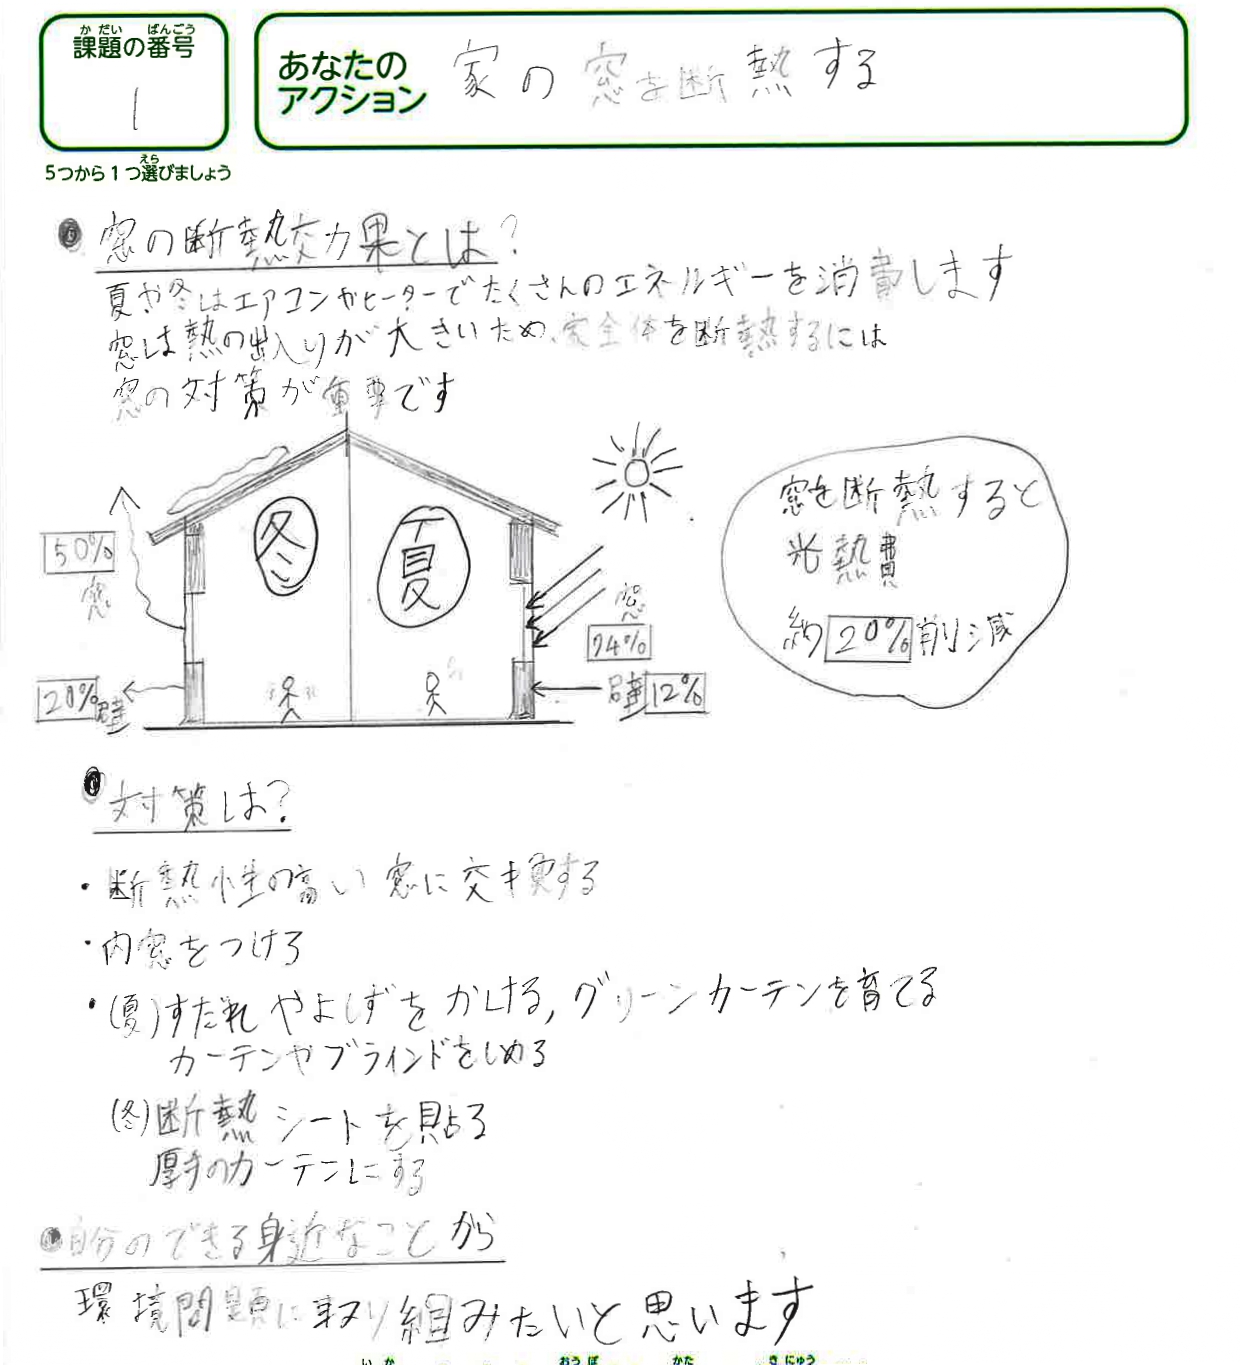 課題の番号
かだい ばんごう
1
5つから1つ選びましょう
えら
あなたの
アクション
家の窓を断熱する
窓の断熱効果とは?
夏や冬はエアコンやヒーターでたくさんのエネルギーを消費します
窓は熱の出入りが大きいため、家全体を断熱するには
窓の対策が重要です
50%
窓
20%
壁
冬
夏
窓
74%
壁
12%
窓を断熱すると
光熱費
約20%削減
対策は?
・断熱性の高い窓に交換する
・内窓をつける
・(夏)すだれやよしずをかける,グリーンカーテンを育てる
カーテンやブラインドをしめる
(冬)断熱シートを貼る
厚手のカーテンにする
自分のできる身近なことから
環境問題に取り組みたいと思います